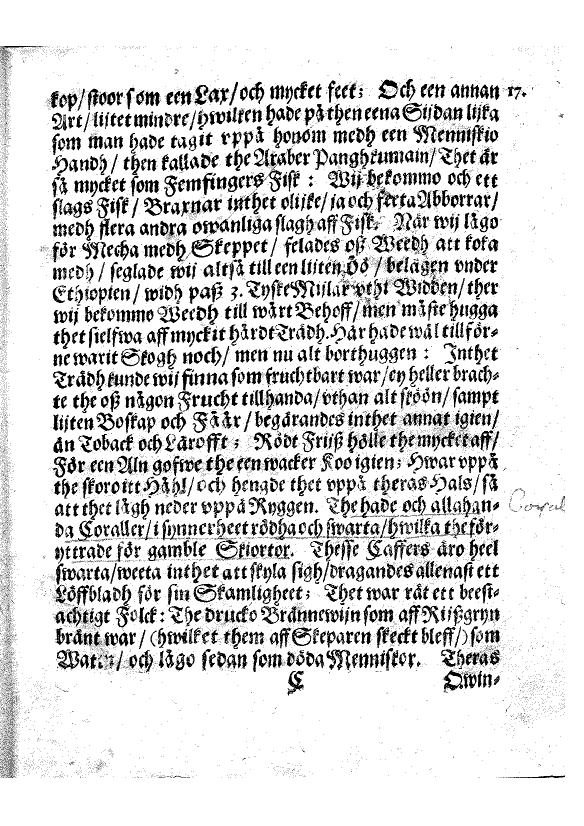 kop/stoor som een Lax/och mycket feet; Och een annan 17.
Art/lijtet mindre/hwilken hade på then eena Sijdan lijka
som man hade tagit vppå honom medh een Menniskio
Handh/ then kallade the Araber Panghkumain/ Thet är
så mycket som Femfingers Fisk: Wij bekommo och ett
slags Fisk/ Braxnar inthet olijke/ja och ferta Abborrar/
medh flera andra owanliga slagh aff Fisk. När wij lågo
för Mecha medh Skeppet/ felades oß Weedh att koka
medh/ seglade wij altså till een lijten Öö/ belägen vnder
Ethiopien/ widh paß 3. Tyske Mijlar vthi Widden/ther
wij bekommo Weedh till wårt Behoff/men måste hugga
thet sielfwa aff myckit hårdt Trädh. Här hade wäl tillför-
ne warit Skogh noch/ men nu alt borthuggen: Inthet
Trädh kunde wij finna som fruchtbart war/ey heller brach-
te the oß någon Frucht tillhanda/vthan alt skiön/ sampt
lijten Boskap och Fäär/ begärandes inthet annat igien/
än Toback och Lärofft; Rödt Frijß hölle the mycket aff/
För een Aln gofwe the een wacker Koo igien; Hwar vppå
the skoro itt Håhl/och hengde thet vppå theras Hals/så
att thet lågh neder vppå Ryggen. The hade och allahan-
da Coraller/i synnerheet rödha och swarta/hwilka the för-
yttrade för gamble Skiortor. Thesse Caffers äro heel
swarta/weeta inthet att skyla sigh/dragandes allenast ett
Löffbladh för sin Skamligheet; Thet war rätt ett beest-
achtigt Folck: The drucko Brännewijn som aff Rijßgryn
bränt war/ (hwilket them aff Skeparen skeckt bleff/) som
Watn/ och lågo sedan som döda Menniskor. Theras
C Qwin-